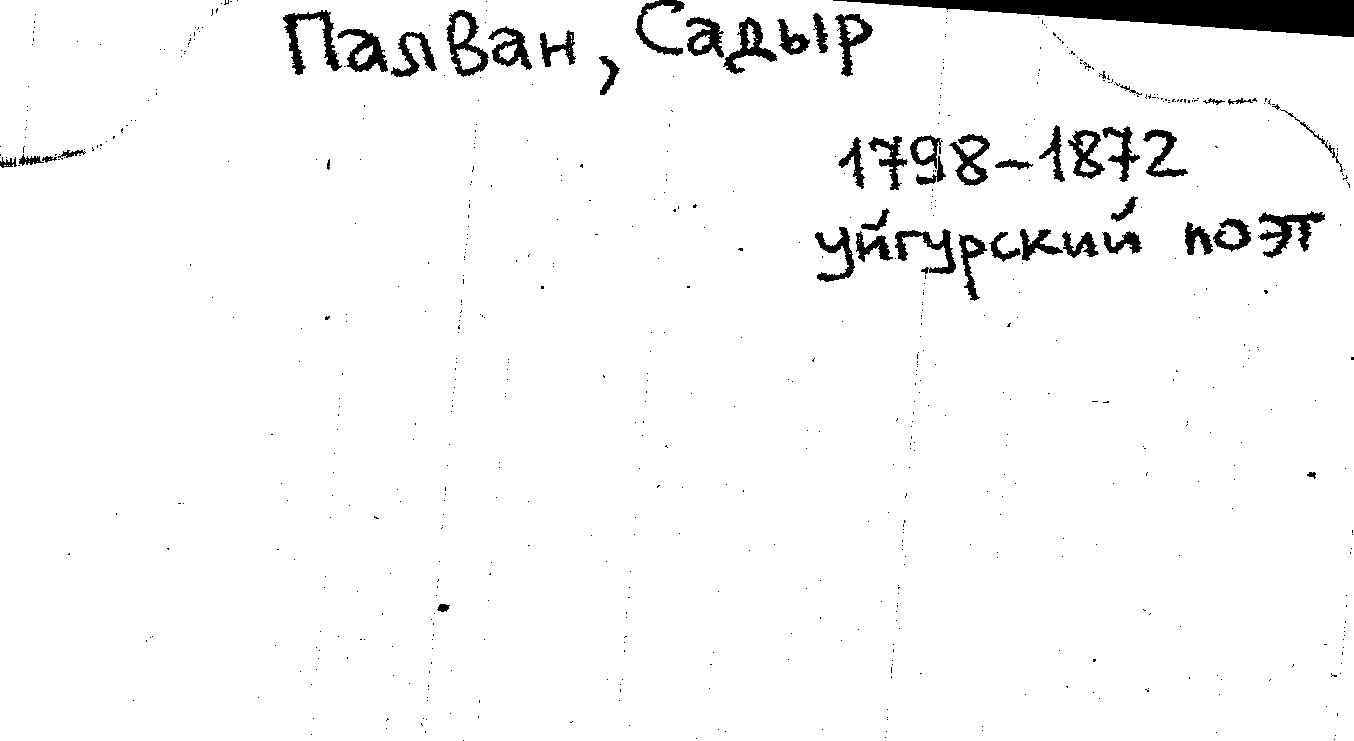 Палван, Садыр
1798-1872
уйгурский поэт